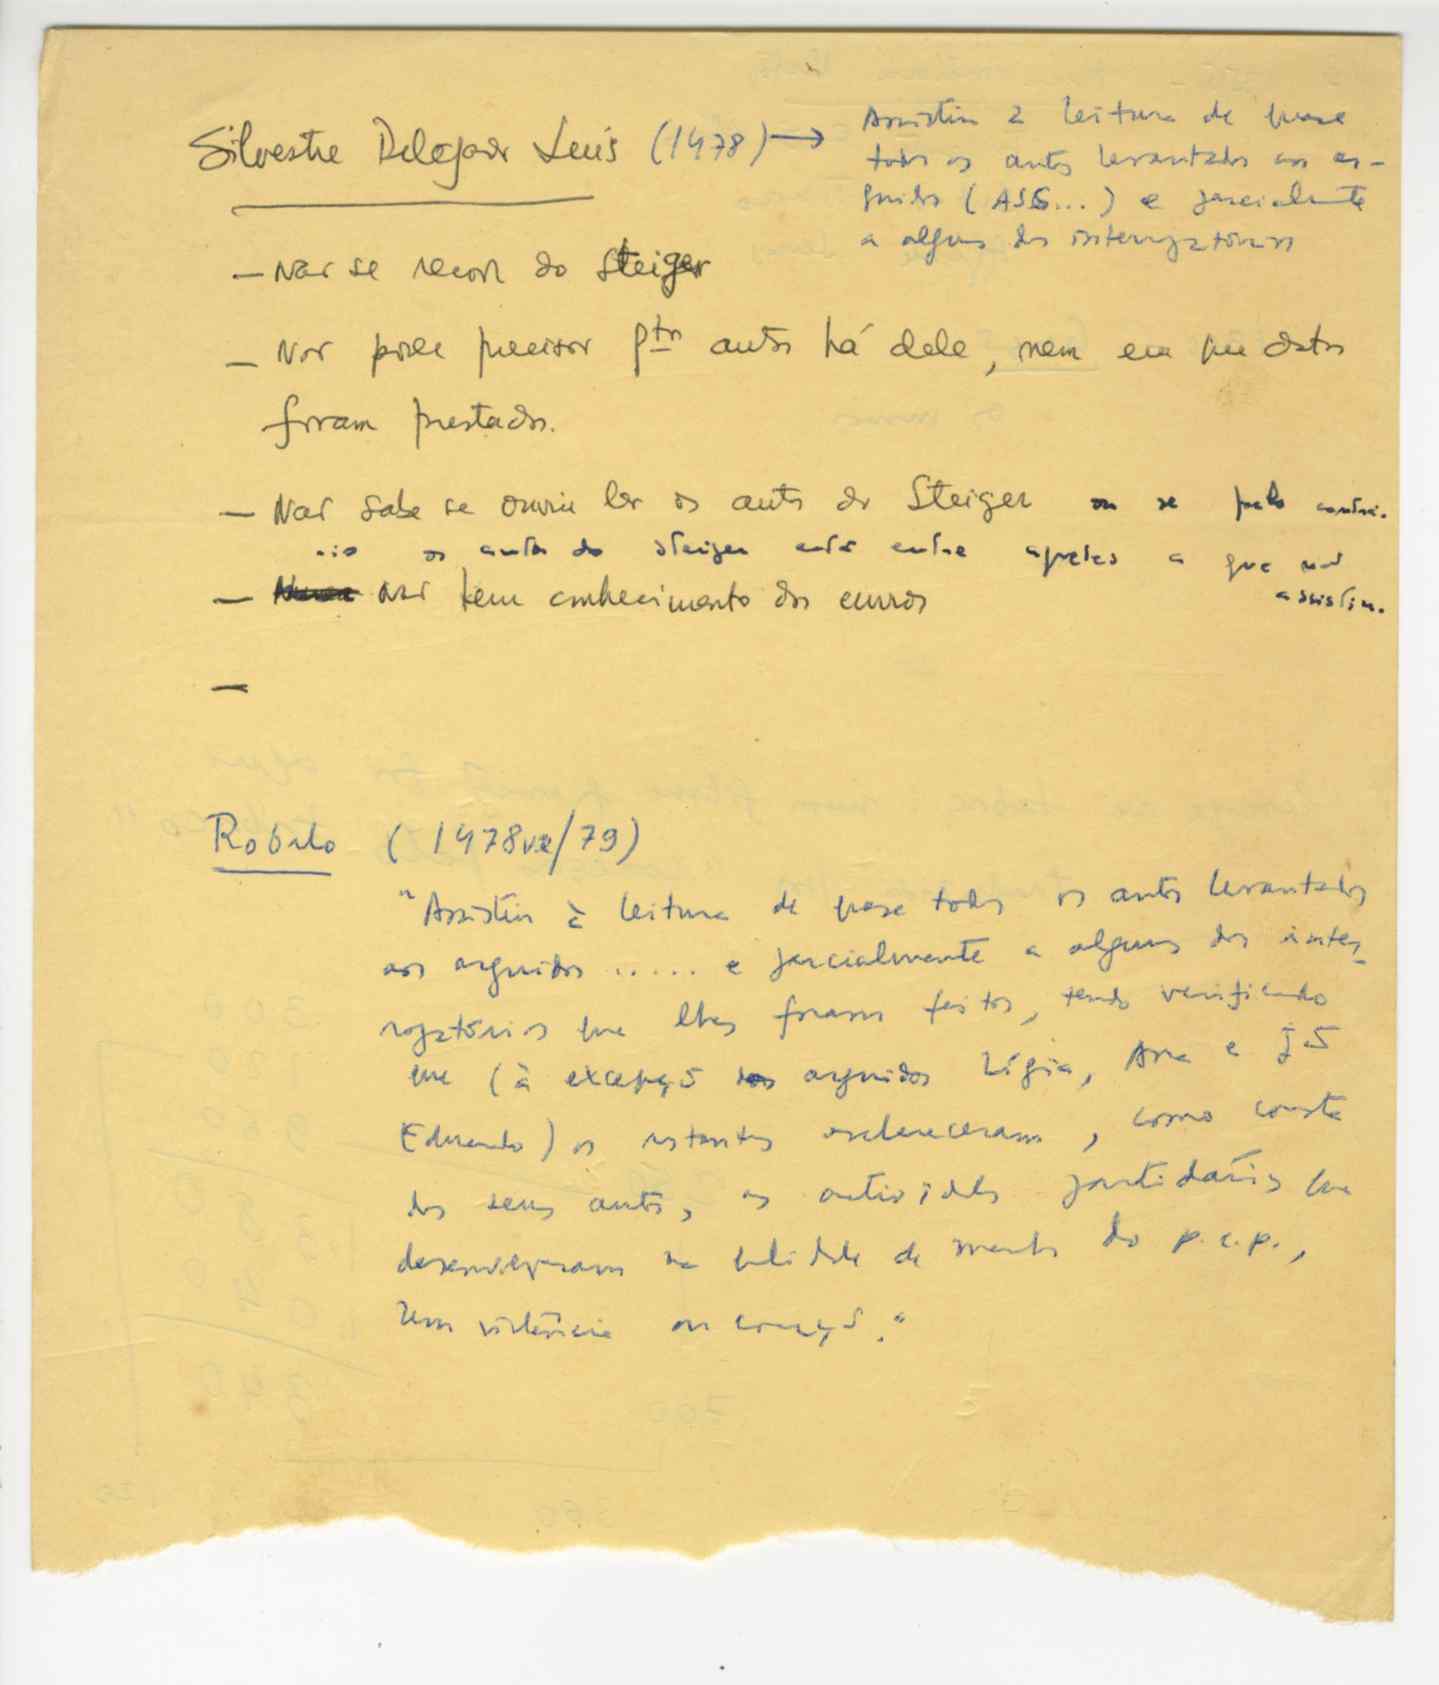 Silvestre Delgado Luís (1478) →
Assistiu à leitura de quase
todos os autos levantados aos ar-
guidos (ASG...) e parcialmente
a alguns dos interrogatórios
— Não se recorda do Steiger
— Não pode precisar qtos autos há dele, nem em que datas
foram prestados.
— Não sabe se ouviu ler os autos do Steiger ou se pelo contrá-
rio os autos do Steiger estão entre aqueles a que não
assistiu.
— não tem conhecimento dos curros
—
Robalo (1478vº/79)
"Assistiu à leitura de quase todos os autos levantados
aos arguidos ..... e parcialmente a alguns dos inter-
rogatórios que lhes foram feitos, tendo verificado
que (à excepção dos arguidos Lígia, Ana e
Eduardo) os restantes esclareceram, como consta
dos seus autos, as actividades partidárias que
desenvolveram na qualidade de membros do p.c.p.,
sem violência ou coacção."